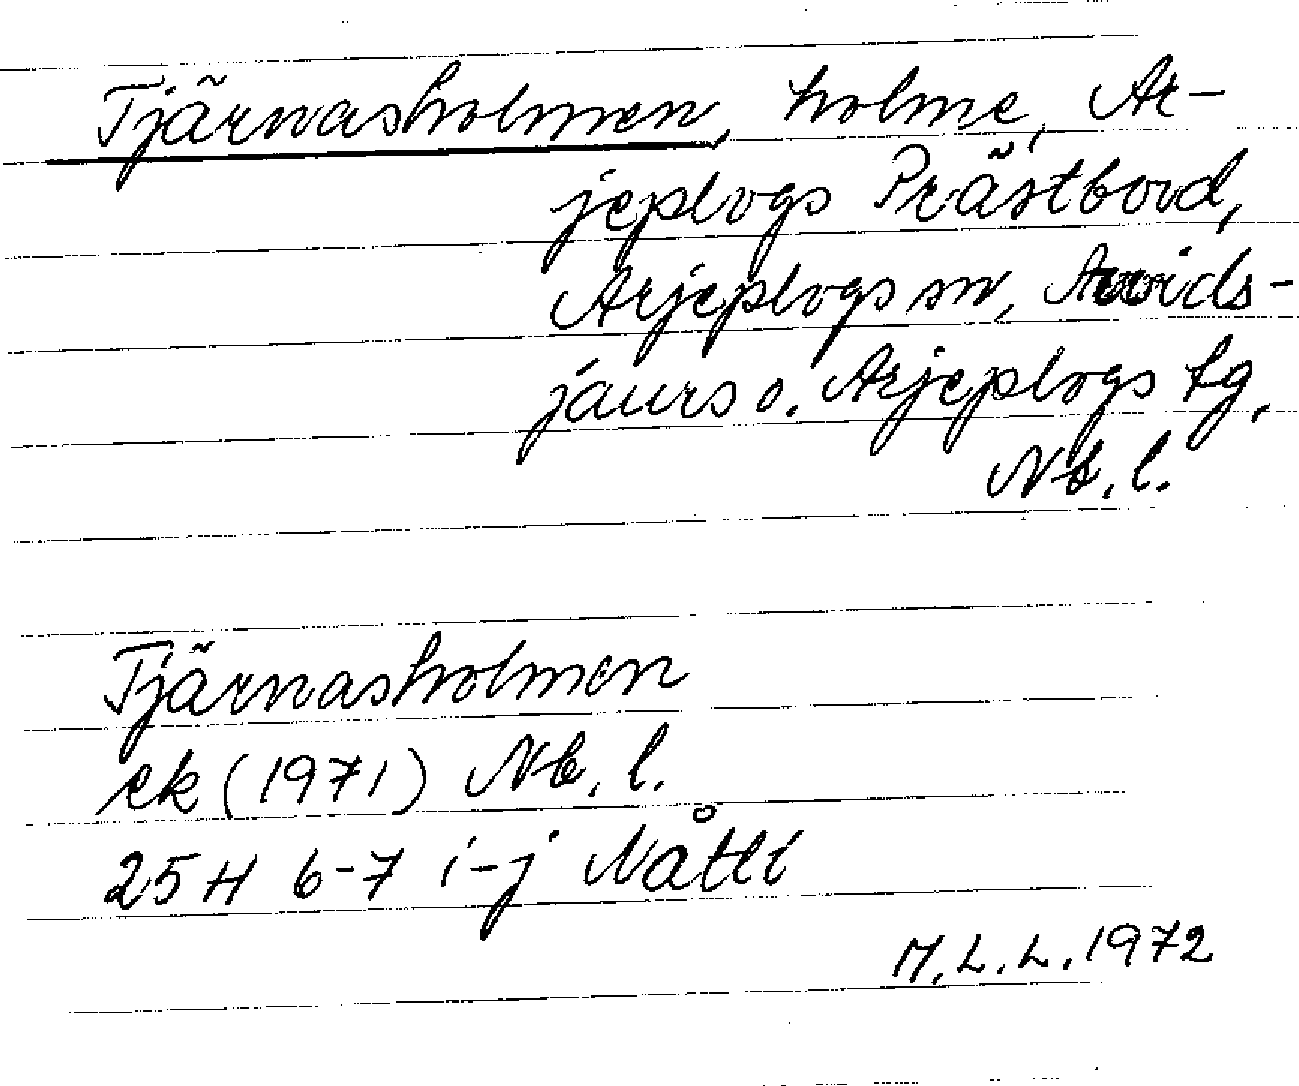 Tjärnasholmen, holme, Ar-
jeplogs Prästbord,
Arjeplogs sn, Arvids-
jaurs o. Arjeplogs tg,
Nb. l.
Tjärnasholmen
ek (1971) Nb. l.
25 H 6-7 i-j Nåtti
M.L.L. 1972